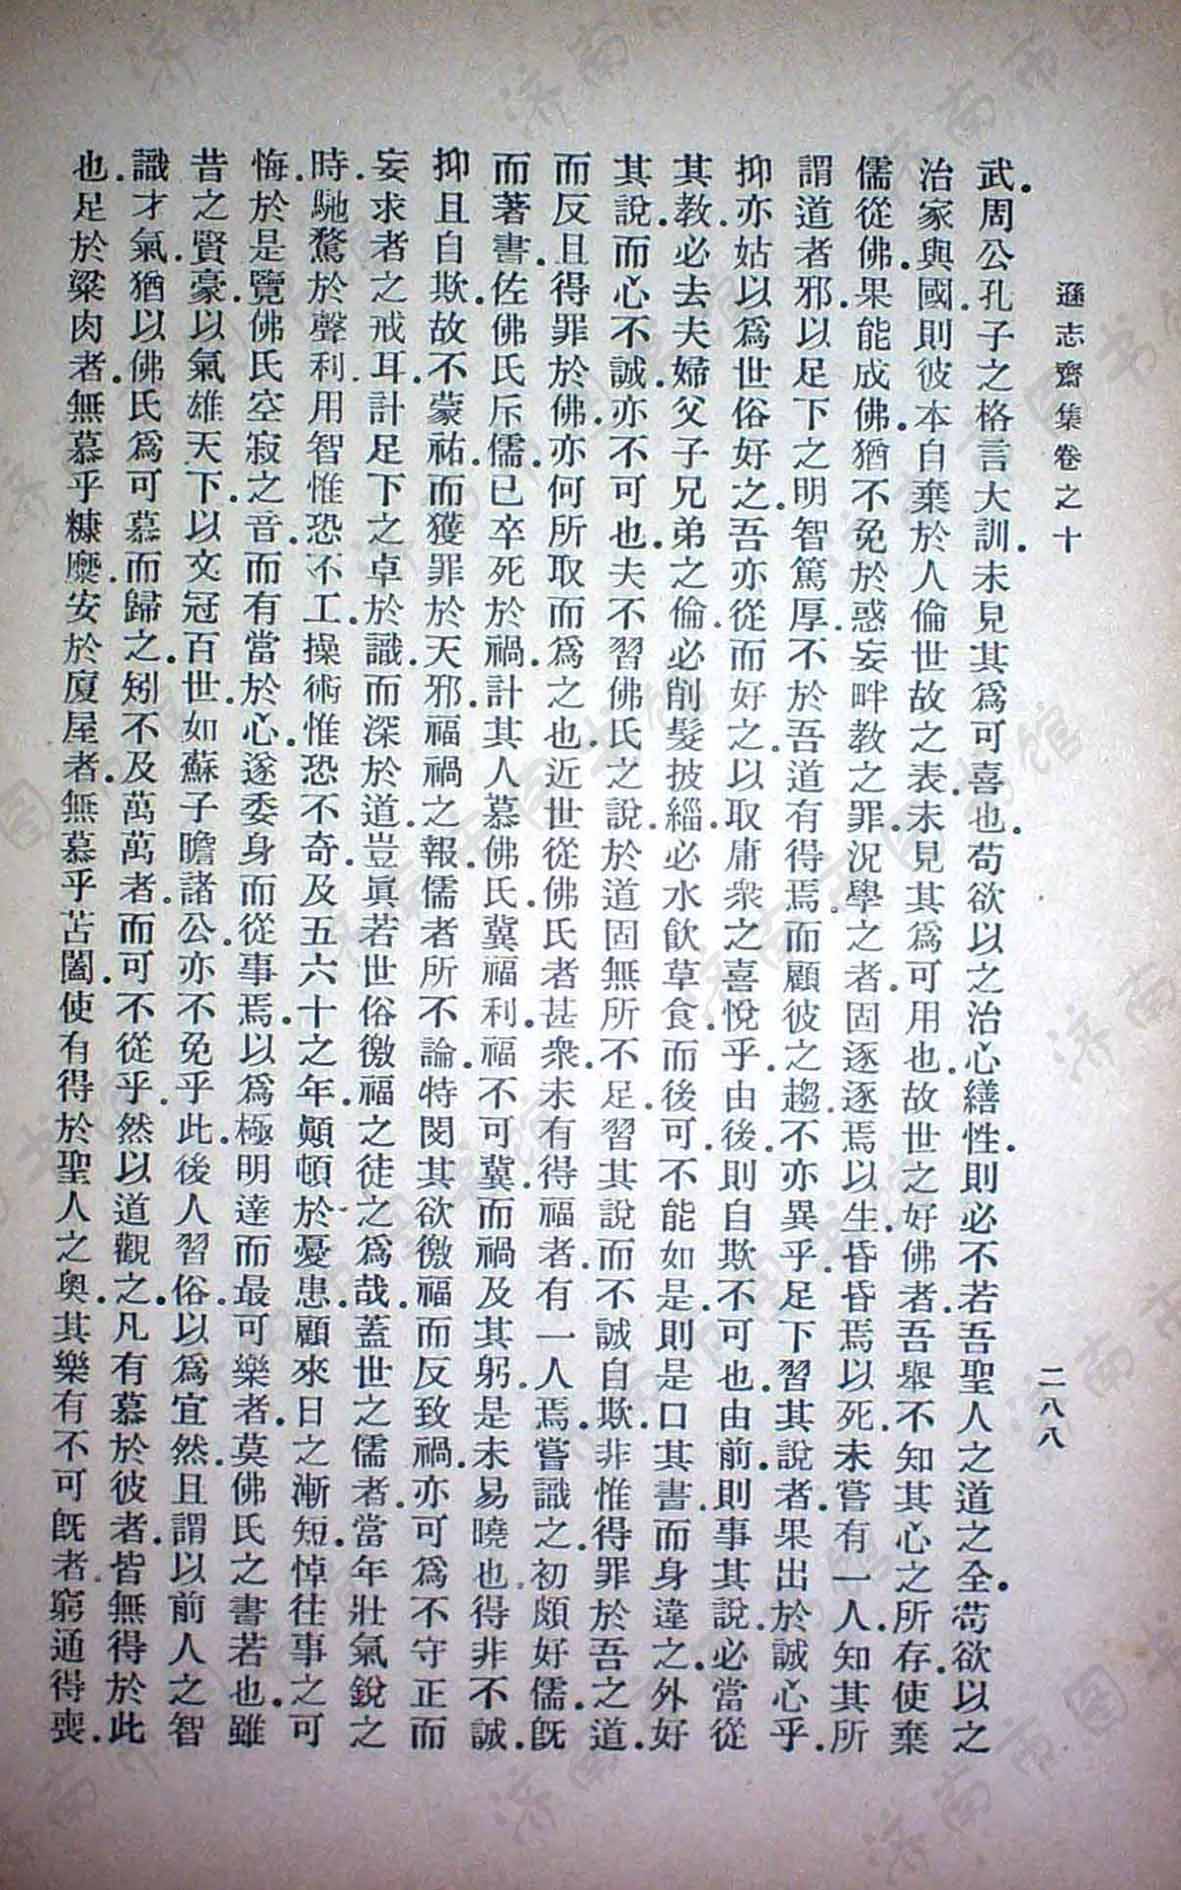 遜志齋集卷之十
二八八
武。周公孔子之格言大訓。未見其爲可喜也。苟欲以之治心繕性。則必不若吾聖人之道之全。苟欲以之
治家與國。則彼本自棄於人倫世故之表。未見其爲可用也。故世之好佛者。吾舉不知其心之所存。使棄
儒從佛。果能成佛。猶不免於惑妄畔教之罪。況學之者。固逐逐焉以生。昏昏焉以死。未嘗有一人知其所
謂道者邪。以足下之明智篤厚。不於吾道有得焉。而顧彼之趨。不亦異乎。足下習其說者。果出於誠心乎。
抑亦姑以爲世俗好之。吾亦從而好之。以取庸衆之喜悅乎。由後則自欺不可也。由前。則事其說。必當從
其教。必去夫婦父子兄弟之倫。必削髮披緇。必水飲草食。而後可。不能如是。則是口其書。而身違之。外好
其說。而心不誠。亦不可也。夫不習佛氏之說。於道固無所不足。習其說而不誠自欺。非惟得罪於吾之道。
而反且得罪於佛。亦何所取而爲之也。近世從佛氏者甚衆。未有得福者。有一人焉。嘗識之。初頗好儒。旣
而著書。佐佛氏斥儒。已卒死於禍。計其人慕佛氏。冀福利。福不可冀。而禍及其躬。是未易曉也。得非不誠。
抑且自欺。故不蒙祐。而獲罪於天邪。福禍之報。儒者所不論。特閔其欲徼福而反致禍。亦可爲不守正而
妄求者之戒耳。計足下之卓於識。而深於道。豈眞若世俗徼福之徒之爲哉。蓋世之儒者。當年壯氣銳之
時。馳騖於聲利。用智惟恐不工。操術惟恐不奇。及五六十之年。顚頓於憂患。顧來日之漸短。悼往事之可
悔。於是覽佛氏空寂之音。而有當於心。遂委身而從事焉。以爲極明達而最可樂者。莫佛氏之書若也。雖
昔之賢豪。以氣雄天下。以文冠百世。如蘇子瞻諸公。亦不免乎此。後人習俗。以爲宜然。且謂以前人之智
識才氣。猶以佛氏爲可慕而歸之。矧不及萬萬者。而可不從乎。然以道觀之。凡有慕於彼者。皆無得於此
也。足於粱肉者。無慕乎糠糜。安於廈屋者。無慕乎苫闔。使有得於聖人之奧。其樂有不可旣者。窮通得喪。